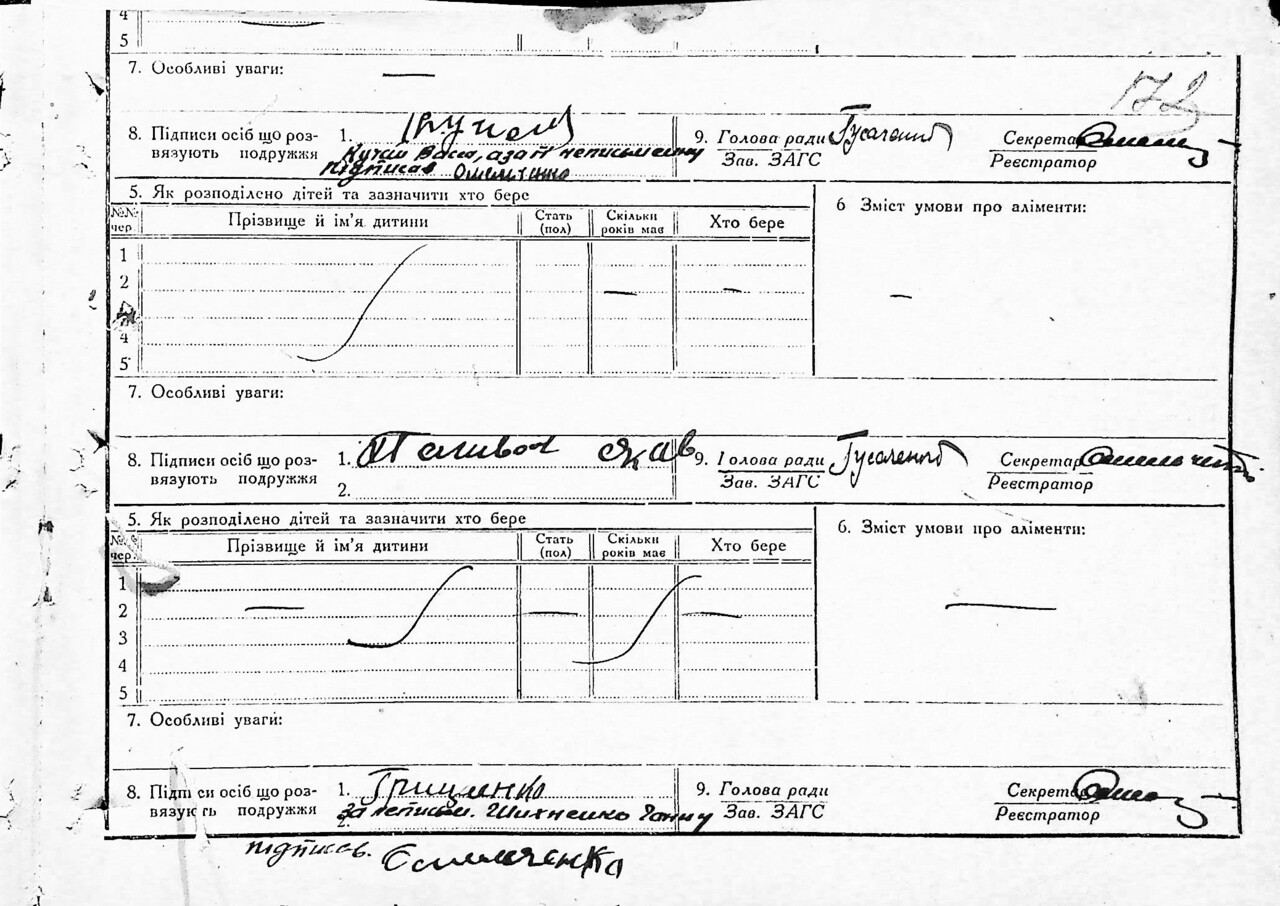 4
5
7. Особливі уваги:
172
8. Підписи осіб що роз-
вязують подружжя
1.
підписав Омельченко
9. Голова ради Гусаленко
Зав. ЗАГС
Секретар
Реєстратор
5. Як розподілено дітей та зазначити хто бере
№№ чер. Прізвище й ім'я дитини Стать (пол) Скільки років має Хто бере
1
2
4
5
6 Зміст умови про аліменти:
7. Особливі уваги:
8. Підписи осіб що роз-
вязують подружжя
1. Паливода Яков
2.
9. Голова ради Гусаленко
Зав. ЗАГС
Секретар Омельченко
Реєстратор
5. Як розподілено дітей та зазначити хто бере
№№ чер. Прізвище й ім'я дитини Стать (пол) Скільки років має Хто бере
1
2
3
4
5
6. Зміст умови про аліменти:
7. Особливі уваги:
8. Підписи осіб що роз-
вязують подружжя
1. Грищенко
2. За неписьм.
9. Голова ради
Зав. ЗАГС
Секретар
Реєстратор
підписав. Омельченко